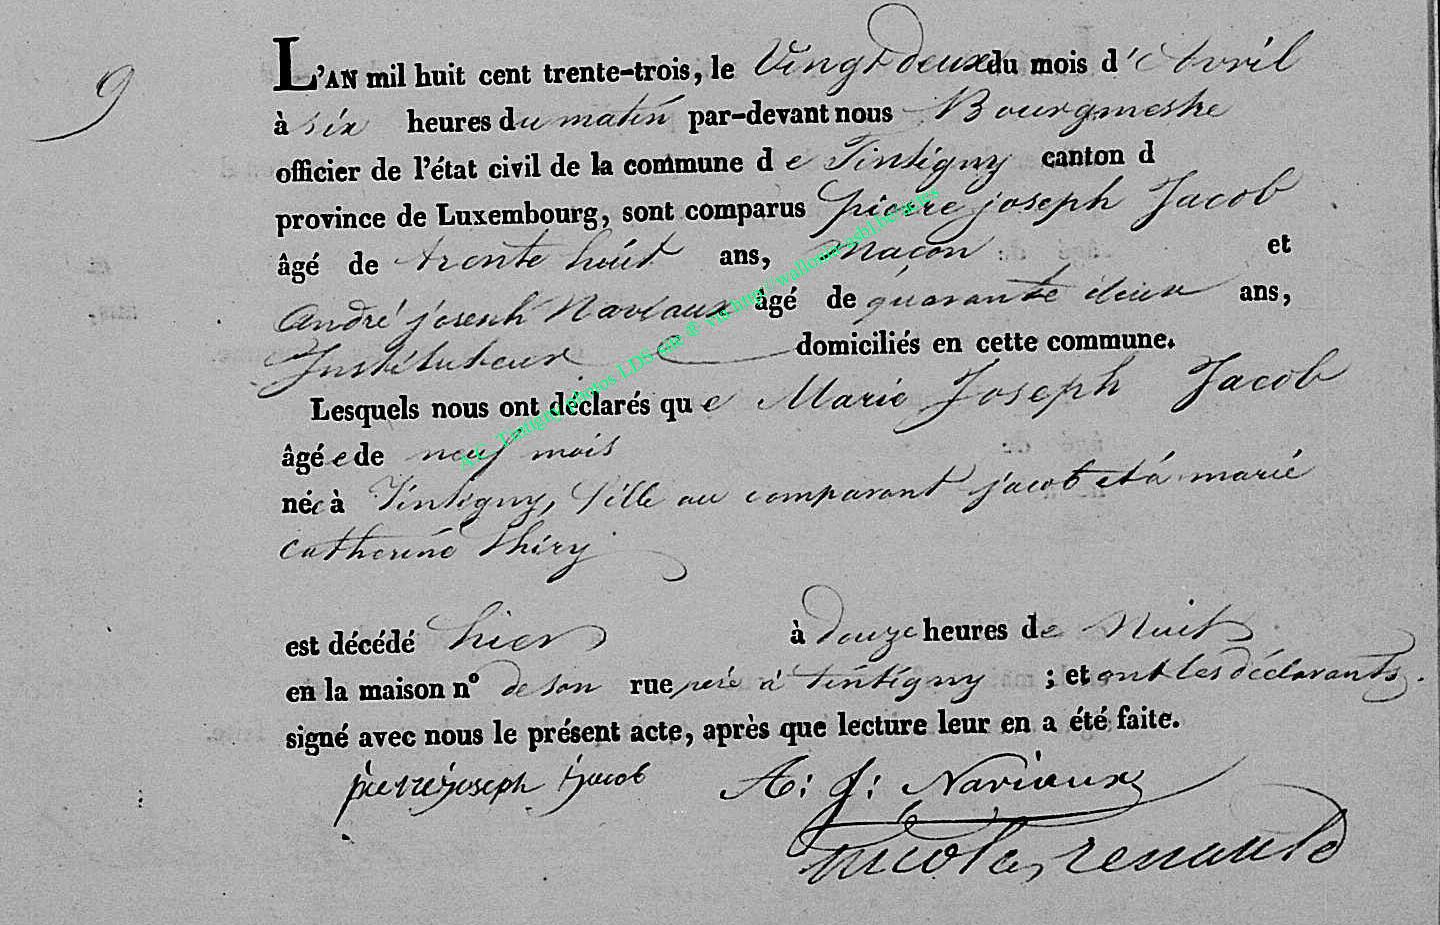 9
L'AN mil huit cent trente-trois, le Vingt deux du mois d'Avril
à six heures du matin par-devant nous Bourgmestre
officier de l'état civil de la commune de Tintigny canton d
province de Luxembourg, sont comparus pierre joseph Jacob
âgé de trente huit ans, Maçon et
André joseph Naviaux âgé de quarante deux ans,
Instituteur domiciliés en cette commune.
Lesquels nous ont déclarés que Marie Joseph Jacob
âgée de neuf mois
née à Tintigny, fille au comparant jacob et à marie
catherine thiry
est décédé hier à douze heures de Nuit
en la maison nº de son rue père à tintigny ; et ont les déclarants
signé avec nous le présent acte, après que lecture leur en a été faite.
pierre joseph Jacob A: J: Naviaux
Nicolas renauld
A.C. Tintigny photos LDS site ® via http://wallonia-asbl.be/actes